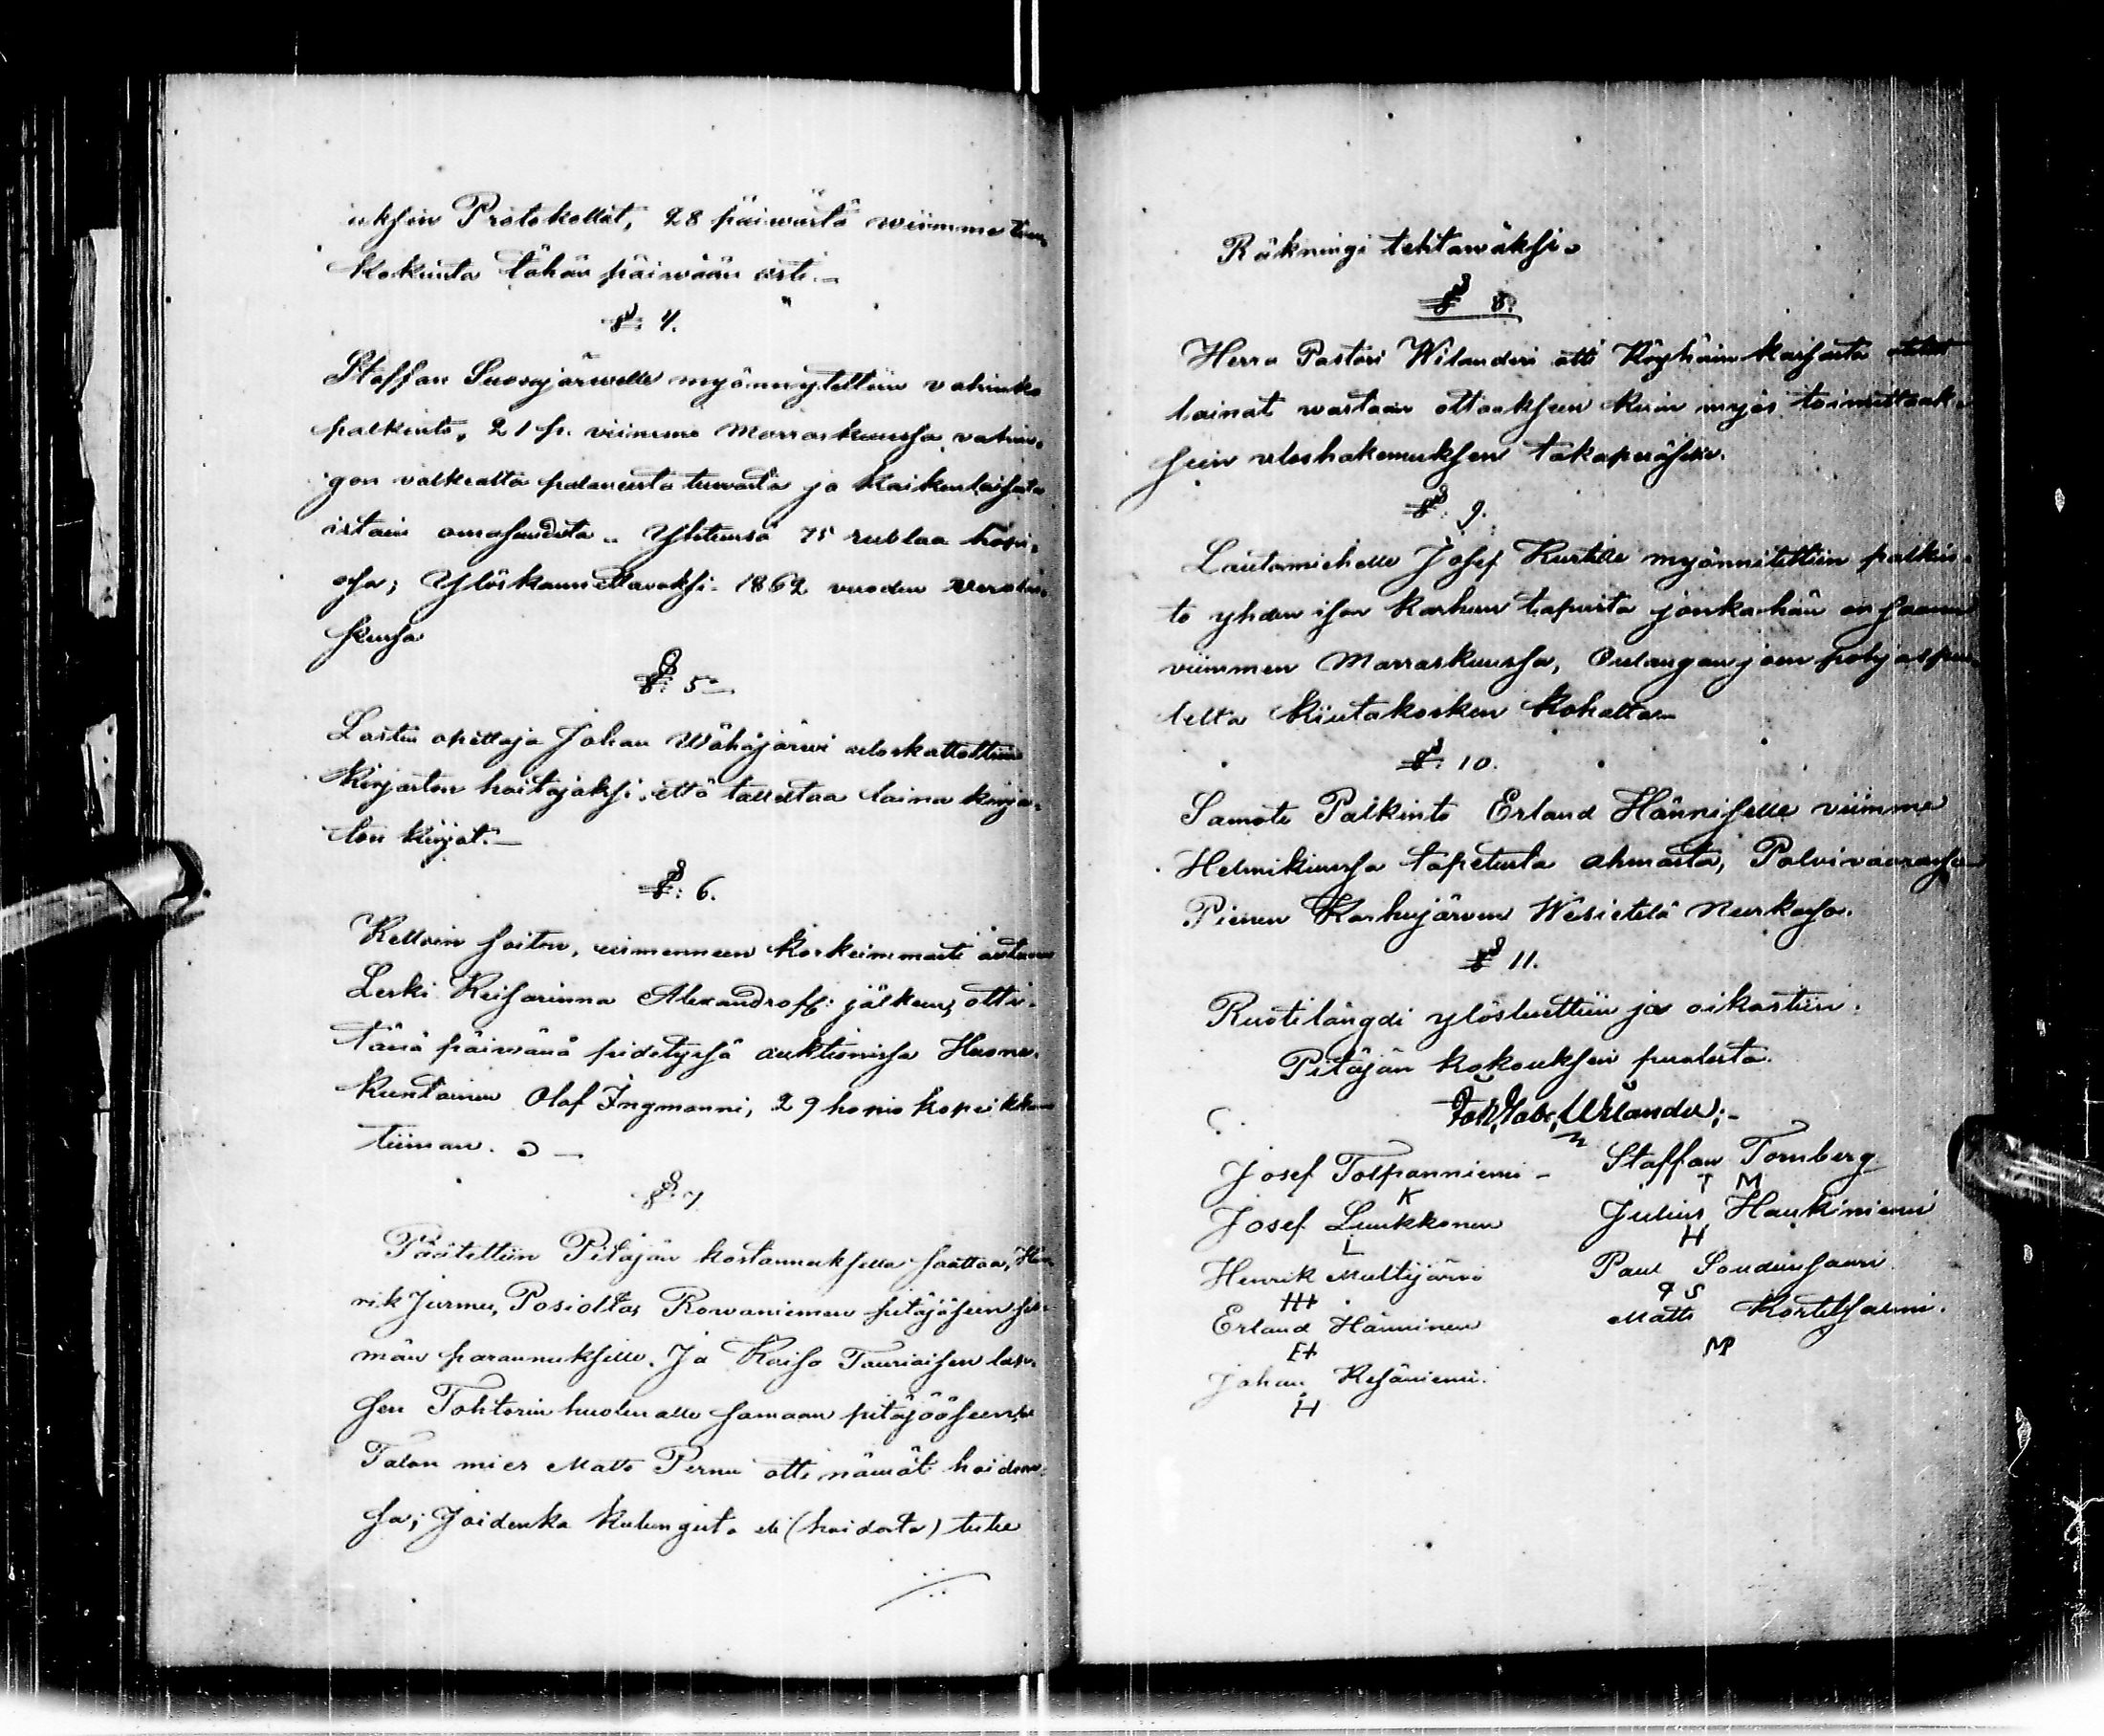 uksein Protokollat, 28 päiwästä wiimme tou-
kokuuta tähän päiwään asti.—
§: 4.
Staffan Suowajärwelle myönnytettiin vahinko
palkinto, 21 p. viimme Marraskuussa vahin-
gon valkealta palaneesta tuwasta ja kaikenlaisesta
irtain omasuudesta. Yhteensä 75 ruplaa hopi-
assa; Ylöskannettavaksi 1862 vuoden Verolu-
kussa
§: 5—
Lasten opettaja Johan Wähäjärwi uloskattottiin
Kirjaston hoitajaksi, että tallettaa laina kirja-
ton kirjat.—
§: 6.
Kelloin soiton, edesmenneen korkeimmasti
Leski Keisarinna Alexandroff: jälkeen, otti
tänä päiwänä pidetyssä auktionissa Huone-
kuntainen Olof Ingmanni, 29 hopia kopeikkaan
tiiman. —
§: 7
Päätettiin Pitäjän kostannuksella saattaa, Hen-
rik Jurmu, Posiolta, Rowaniemen pitäjäsein sil-
män parannukselle. Ja Kaisa Tauriaisen lap-
sen Tohtorin huolen alle samaan pitäjääseen,
Talon mies Matts Pernu otti nämät hoidon-
sa; Joidenka kulungista eli (hoidosta) tulee
Räkningi tehtawäksi.
§ 8.
Herra Pastori Wilanderi otti Köyhäin kassasta
lainat wastaan ottaakseen kuin myös toimittaak-
sein uloshakemuksen takaperäsille.
§: 9.
Lautamiehelle Josef Kurtille myönnitettiin palkin-
to yhden ison Karhun taposta jonka hän on saanut
viimmen Marraskuussa, Oulangan joen pohjaspuo-
lelta Kiutakosken kohalta.—
§: 10.
Samote Palkinto Erland Hänniselle viimme
Helmikuussa tapetusta ahmasta, Polvivaarassa
Pienen Karhujärven Wesietelä Nurkassa.
§ 11.
Ruotilängdi ylösluettiin ja oikastiin.
Pitäjän kokouksein puolesta.
Joh. Gabr. Wilander;—
Josef Tolpanniemi — Staffan Tornberg
K T M
Josef Luukkonen Julius Haukiniemi
L H
Henrik Multijärvi Paul Soudunsaari
HH P S
Erland Hänninen Matts Kortesalmi.
EH M
Johan Kesäniemi.
H